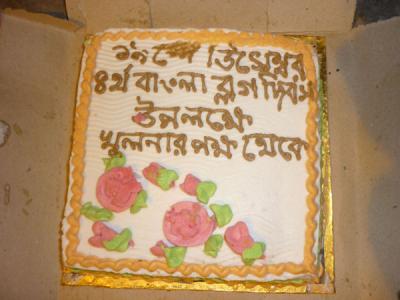 ১৯ শে ডিসেম্বর
৪র্থ বাংলা ব্লগ দিবস
উপলক্ষে
খুলনার পক্ষ থেকে